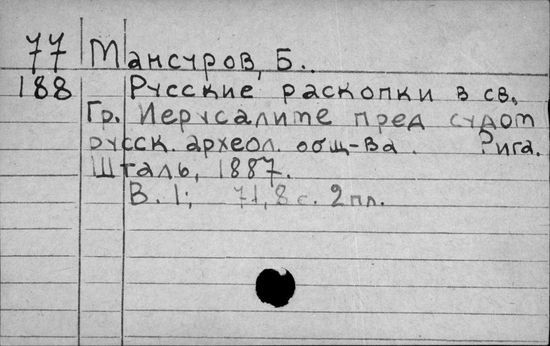 77 Мансуров, Б.
188 Русские раскопки в св.
Гр. Иерусалиме пред судом
русск. археол. общ-ва. Рига.
Шталь, 1887.
В. 1; 71, 8 с. 2 пл.